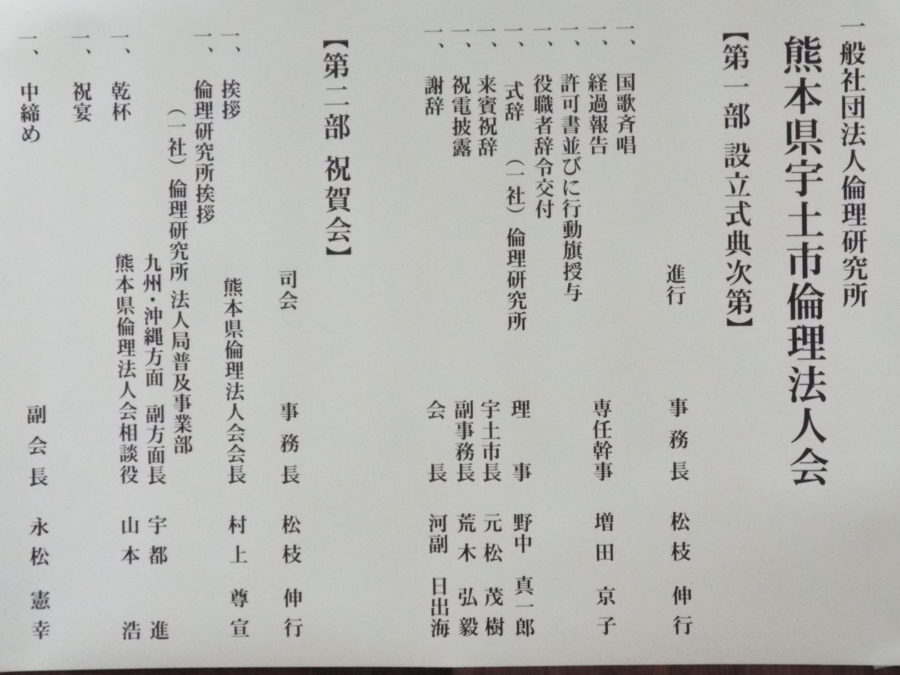 一般社団法人倫理研究所
熊本県宇土市倫理法人会
【第一部 設立式典次第】
進行 事務長 松枝 伸行
一、国歌斉唱
一、経過報告 専任幹事 増田 京子
一、許可書並びに行動旗授与
一、役職者辞令交付
一、式辞 (一社)倫理研究所 理事 野中 真一郎
一、来賓祝辞 宇土市長 元松 茂樹
一、祝電披露 副事務長 荒木 弘毅
一、謝辞 会長 河副 日出海
【第二部 祝賀会】
司会 事務長 松枝 伸行
一、挨拶 熊本県倫理法人会会長 村上 尊宣
一、倫理研究所挨拶
(一社)倫理研究所 法人局普及事業部
九州・沖縄方面 副方面長 宇都 進
一、乾杯 熊本県倫理法人会相談役 山本 浩
一、祝宴
一、中締め 副会長 永松 憲幸